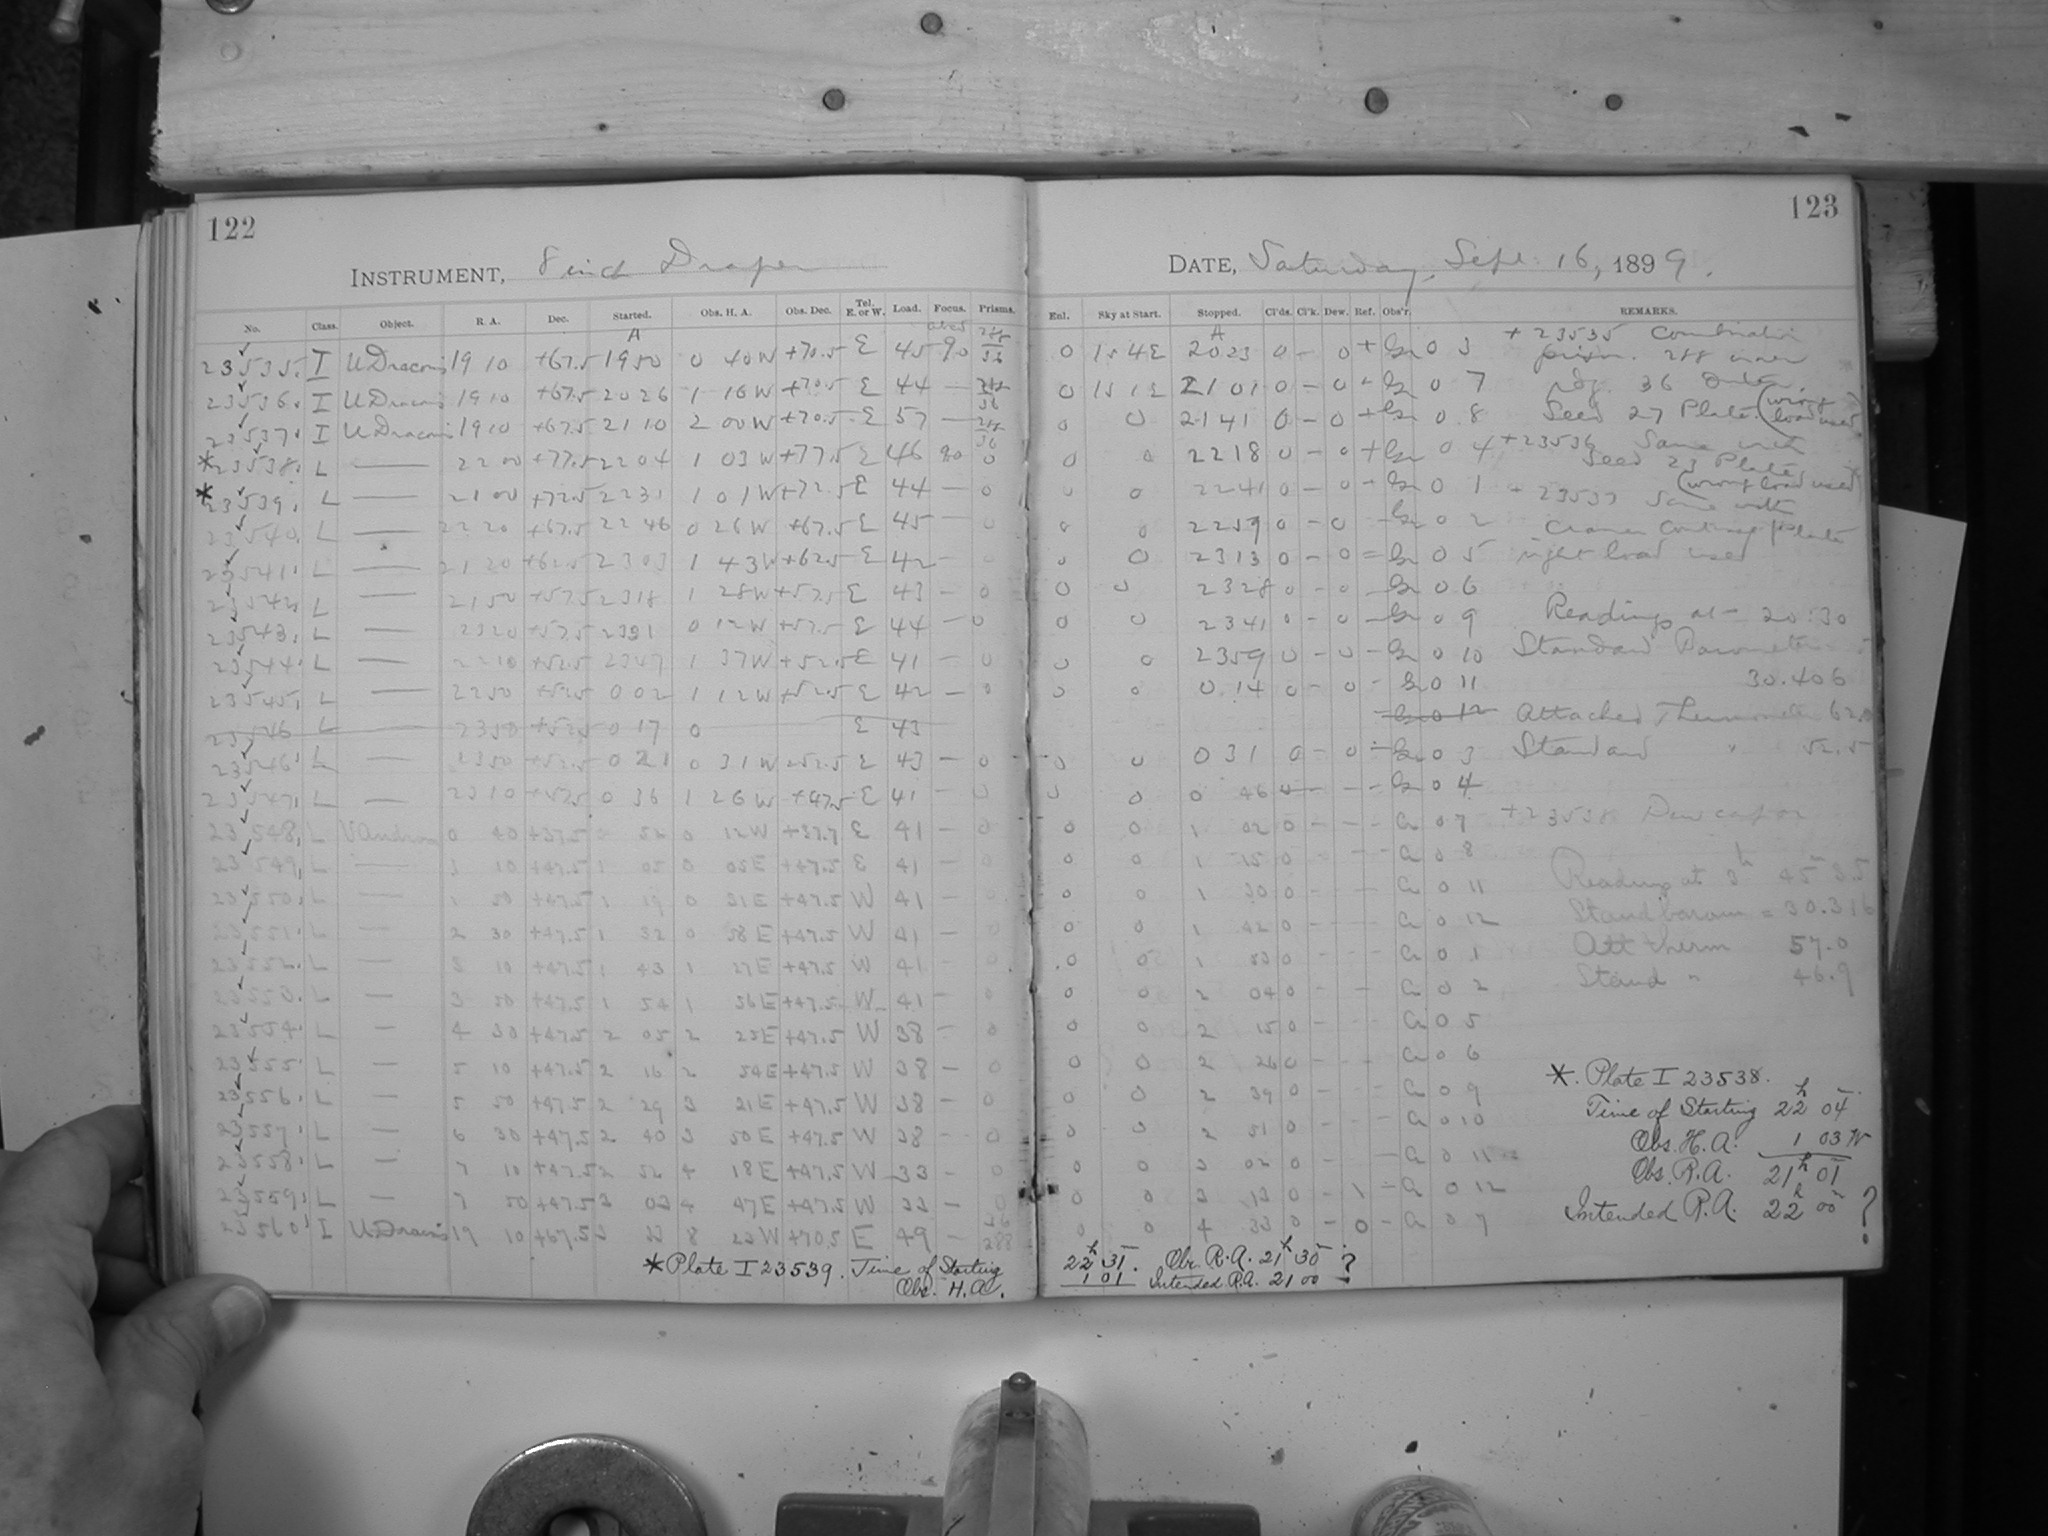 122
INSTRUMENT, 8 inch Draper
No. Class. Object. R. A. Dec. Started. Obs. H. A. Obs. Dec. Tel. E. or W. Load. Focus. Prisms.
23535. I U Draconis 19 10 +67.5 19 50 0 40 W +70.5 E 45 90
23536. I U Draconis 19 10 +67.5 20 26 1 16 W +70.5 E 44 —
23537. I U Draconis 19 10 +67.5 21 10 2 00 W +70.5 E 57 —
*23538. L — 22 00 +77.5 22 04 1 03 W +77.5 E 46 90 0
*23539. L — 21 00 +72.5 22 31 1 01 W +72.5 E 44 — 0
23540. L — 22 20 +67.5 22 46 0 26 W +67.5 E 45 — 0
23541. L — 21 20 +62.5 23 03 1 43 W +62.5 E 42 — 0
23542. L — 21 50 +57.5 23 18 1 28 W +57.5 E 43 — 0
23543. L — 23 20 +57.5 23 31 0 12 W +57.5 E 44 — 0
23544. L — 22 10 +52.5 23 47 1 37 W +52.5 E 41 — 0
23545. L — 22 50 +52.5 0 02 1 12 W +52.5 E 42 — 0
23546 L — 23 50 +52.5 0 17 0 E 43
23546. L — 23 50 +52.5 0 21 0 31 W +52.5 E 43 — 0
23547. L — 23 10 +47.5 0 36 1 26 W +47.5 E 41 — 0
23548. L 0 40 +37.5 52 0 12 W +37.7 E 41 — 0
23549. L — 1 10 +47.5 1 05 0 05 E +47.5 E 41 — 0
23550. L — 1 50 +47.5 1 19 0 31 E +47.5 W 41 — 0
23551. L — 2 30 +47.5 1 32 0 58 E +47.5 W 41 — 0
23552. L — 3 10 +47.5 1 43 1 27 E +47.5 W 41 — 0
23553. L — 3 50 +47.5 1 54 1 56 E +47.5 W 41 — 0
23554. L — 4 30 +47.5 2 05 2 25 E +47.5 W 38 — 0
23555. L — 5 10 +47.5 2 16 2 54 E +47.5 W 38 — 0
23556. L — 5 50 +47.5 2 29 3 21 E +47.5 W 38 — 0
23557. L — 6 30 +47.5 2 40 3 50 E +47.5 W 38 — 0
23558. L — 7 10 +47.5 2 52 4 18 E +47.5 W 33 — 0
23559. L — 7 50 +47.5 3 03 4 47 E +47.5 W 33 — 0
23560. I U Draconis 19 10 +67.5 3 33 8 23 W +70.5 E 49 —
*Plate I 23539. Time of Starting 22h 31. Obs. R.A. 21h 30 ?
Obs. H.A. 1 01 Intended R.A. 21 00
123
DATE, Saturday, Sept. 16, 1899.
Enl. Sky at Start. Stopped. Cl'ds. Cl'k. Dew. Ref. Obs'r. REMARKS.
0 1s 4E 20 23 0 – 0 + 0 3
0 1s 1E 21 01 0 – 0 0 7
0 0 21 41 0 – 0 + 0 8
0 0 22 18 0 – 0 + 0 4
0 0 22 41 0 – 0 0 1
0 0 22 59 0 – 0 – 0 2
0 0 23 13 0 – 0 0 5
0 0 23 28 0 – 0 – 0 6
0 0 23 41 0 – 0 – 0 9
0 0 23 59 0 – 0 – 0 10
0 0 0 14 0 – 0 – 0 11
0 12
0 0 0 31 0 – 0 0 3
0 0 0 46 – – 0 4
0 0 1 02 0 – – – 0 7
0 0 1 15 0 – – – 0 8
0 0 1 30 0 – – – 0 11
0 0 1 42 0 – – – 0 12
0 0 1 53 0 – – – 0 1
0 0 2 04 0 – – – 0 2
0 0 2 15 0 – – – 0 5
0 0 2 26 0 – – – 0 6
0 0 2 39 0 – – – 0 9
0 0 2 51 0 – – – 0 10
0 0 3 02 0 – – 0 11
0 0 3 13 0 – 1 0 12
0 0 4 33 0 – 0 – 0 7
+ 23535 Combination
prism. 288 inner
edg. 36 outer.
Seed 27 Plate. (wrong load used
+ 23536 Same with
Seed 23 Plate
(wrong load used
+ 23537 Same with
Cramer Contrast Plate
right load used
Readings at – 20:30
Standard Barometer
30.406
Attached Thermometer 62.0
Standard " 52.5
+ 23538 Dew cap on
Reading at 3h 45
Stand barom = 30.316
Att therm 57.0
Stand " 46.9
*. Plate I 23538.
Time of Starting 22h 04
Obs. H.A. 1 03 W
Obs. R.A. 21h 01
Intended R.A. 22h 00 ?